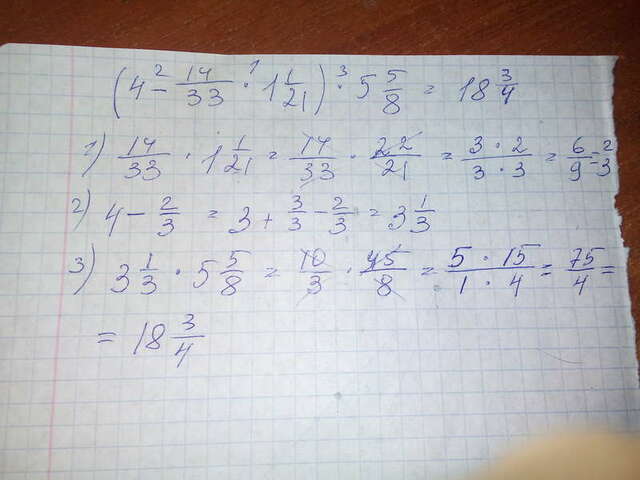 (4 - 14/33 · 1 1/21) · 5 5/8 = 18 3/4
1) 14/33 · 1 1/21 = 14/33 · 22/21 = 3 · 2/3 · 3 = 6/9 = 2/3
2) 4 - 2/3 = 3 + 3/3 - 2/3 = 3 1/3
3) 3 1/3 · 5 5/8 = 10/3 · 45/8 = 5 · 15/1 · 4 = 75/4 =
= 18 3/4